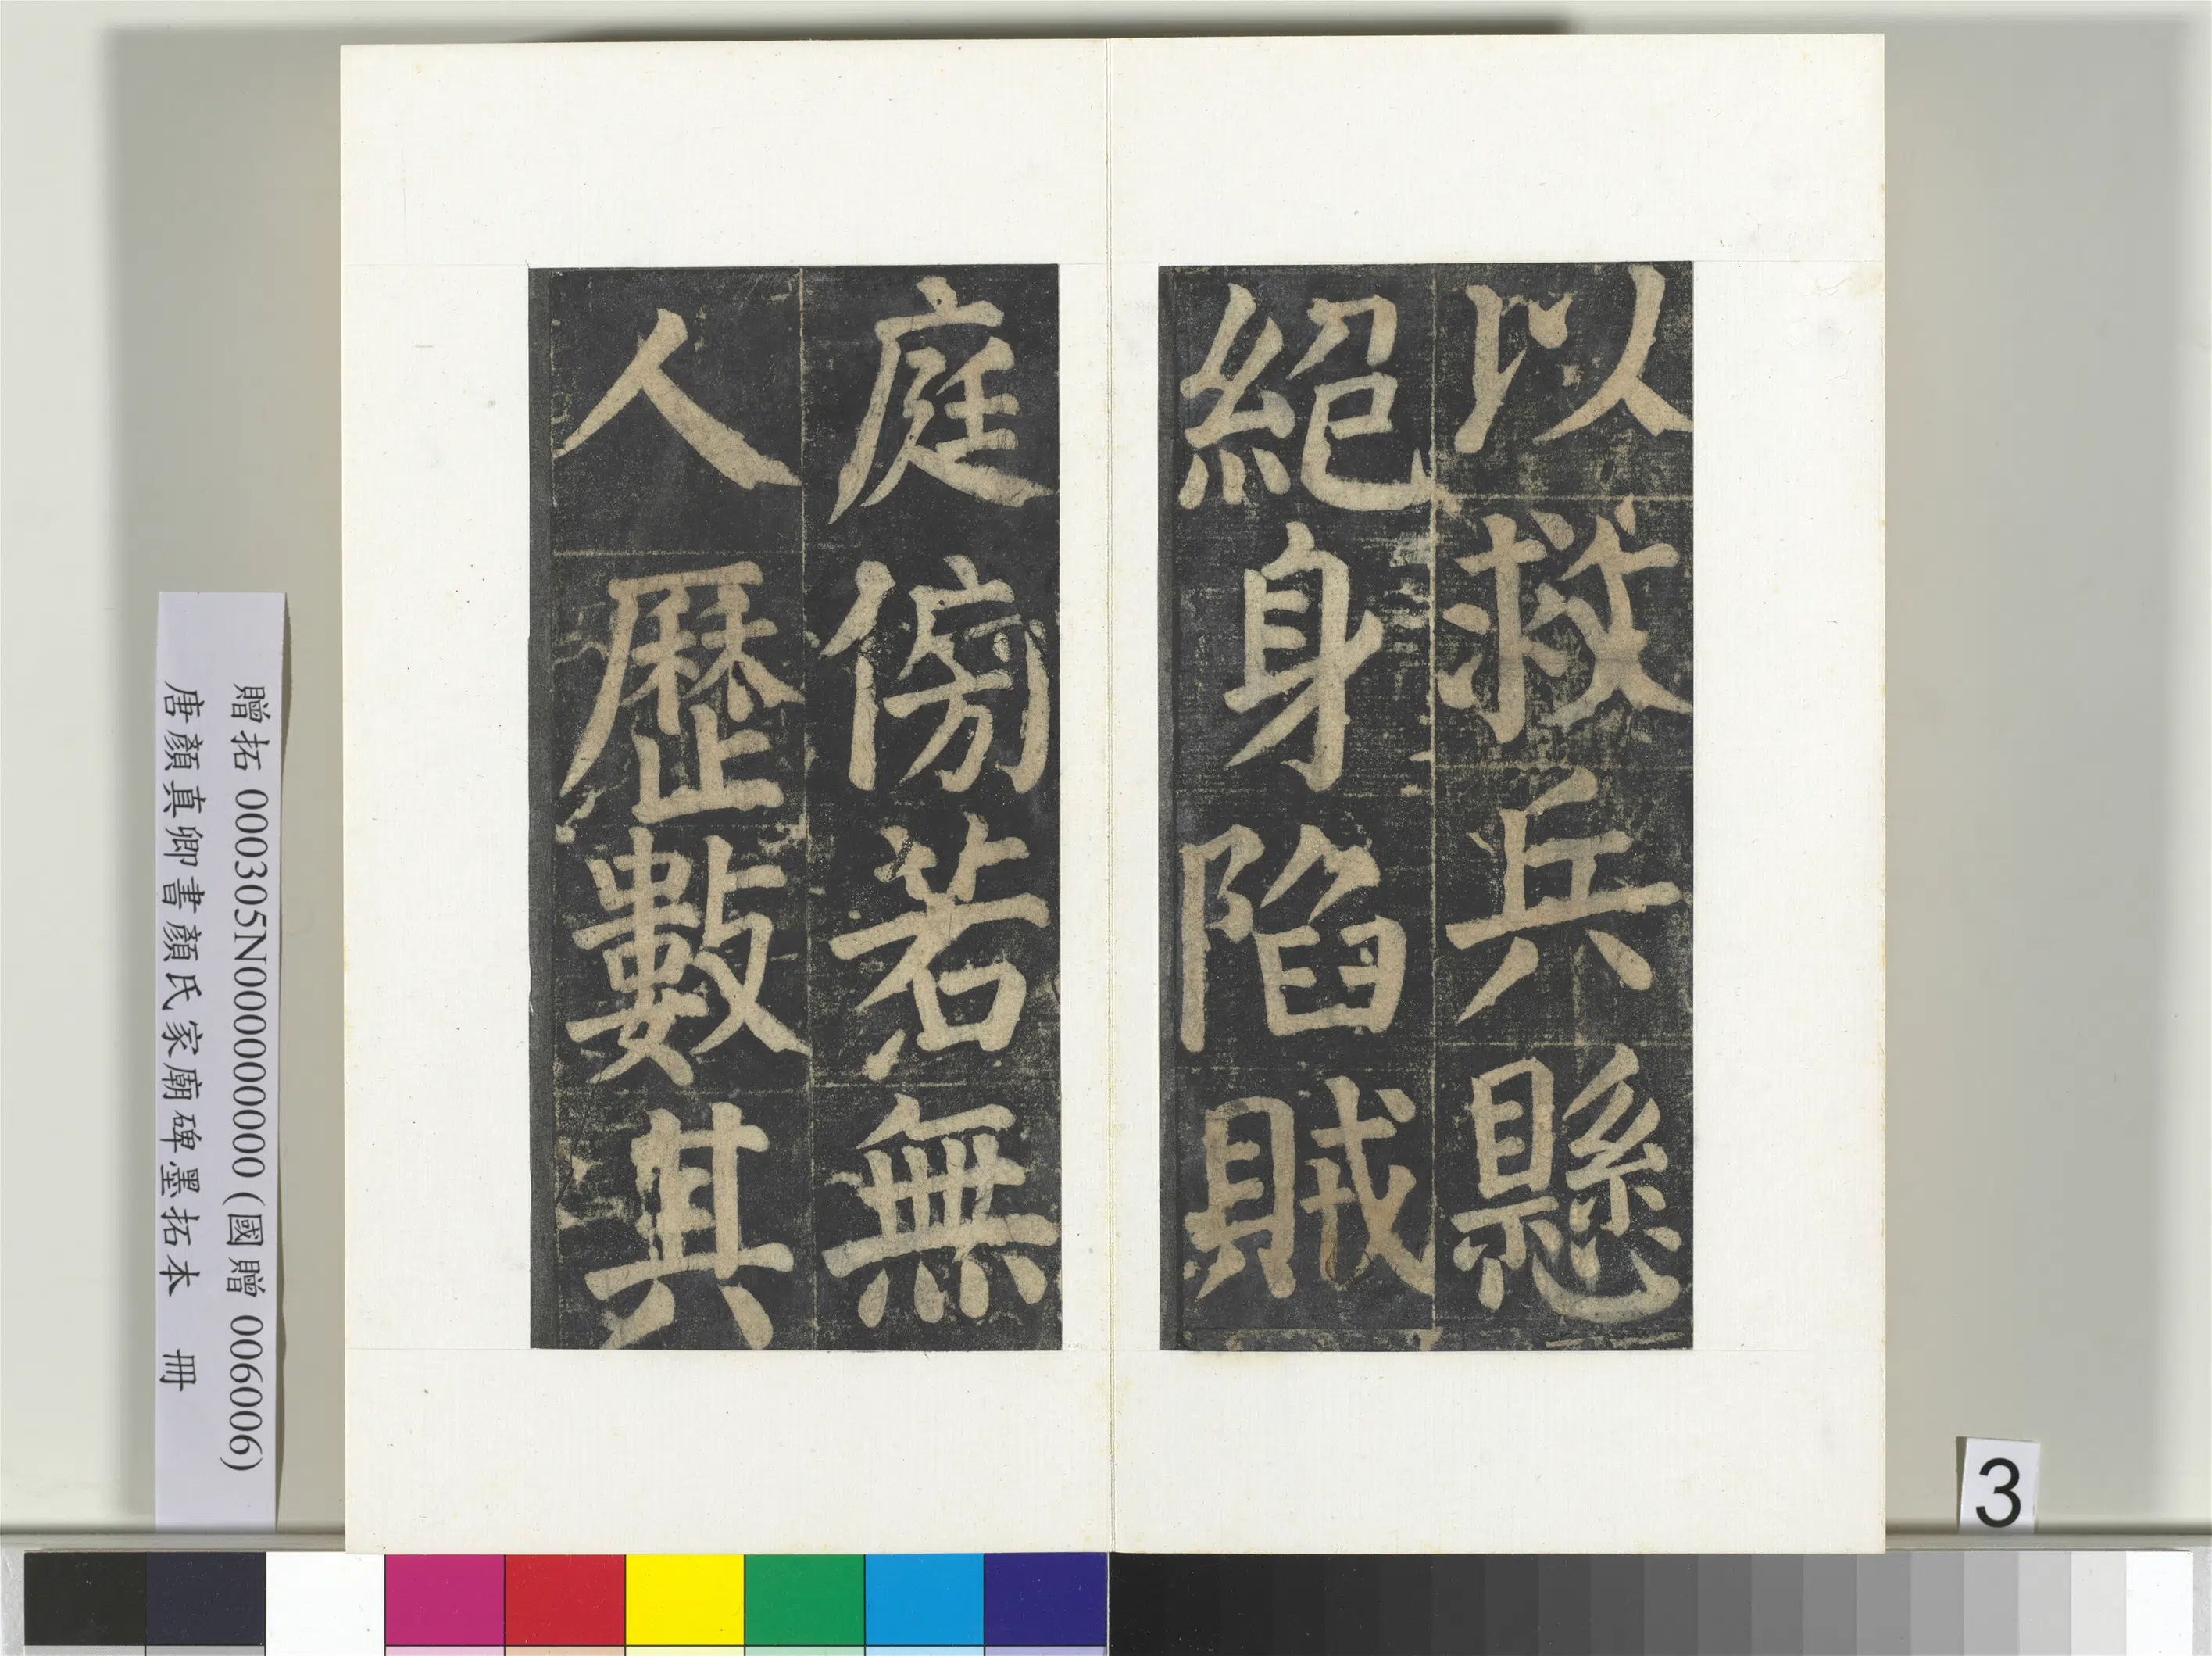 以救兵懸
絕身陷賊
庭傍若無
人歷數其
贈拓 000305N000000000 (國贈 006006)
唐顏真卿書顏氏家廟碑墨拓本 冊
3